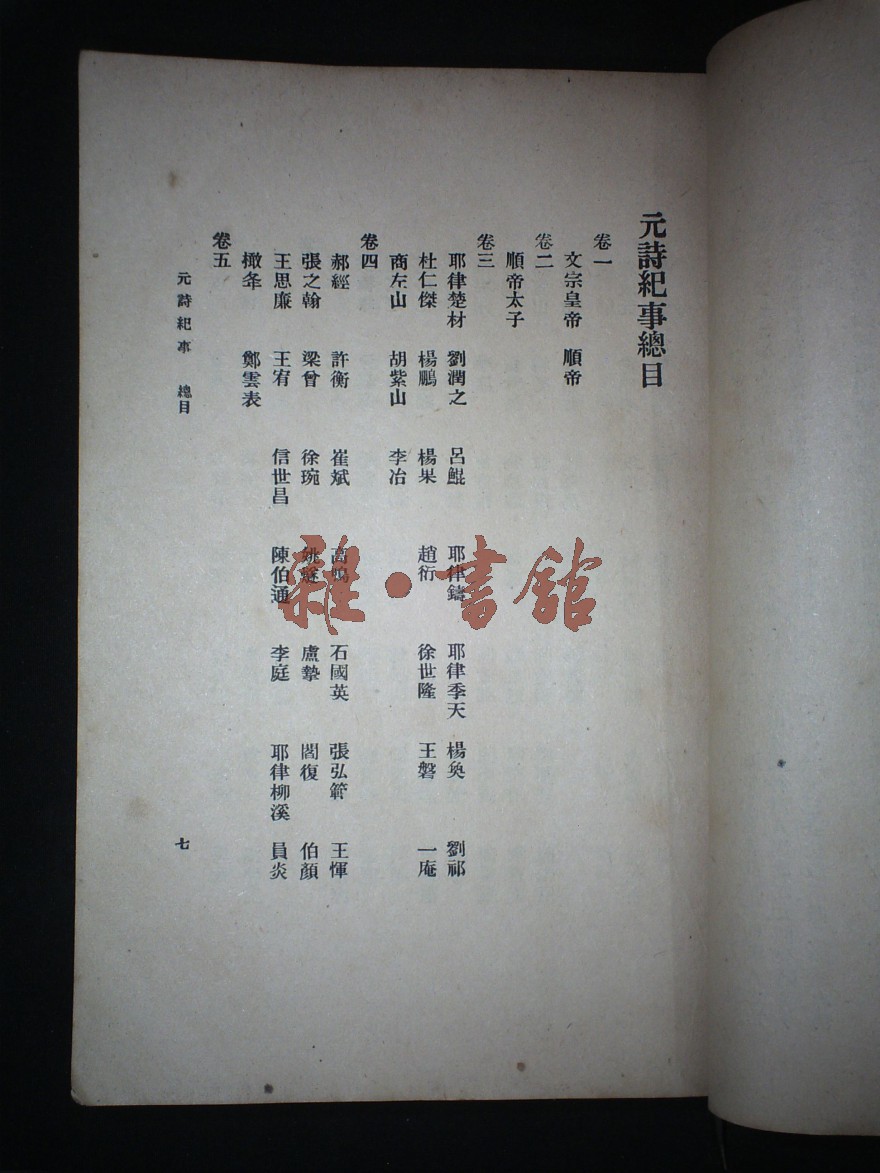 元詩紀事總目
卷一
文宗皇帝 順帝
卷二
順帝太子
卷三
耶律楚材 劉潤之 呂鯤 耶律鑄 耶律季天 楊奐 劉祁
杜仁傑 楊鵬 楊果 趙衍 徐世隆 王磐 一庵
商左山 胡紫山 李冶
卷四
郝經 許衡 崔斌 高鳴 石國英 張弘範 王惲
張之翰 梁曾 徐琬 姚燧 盧摯 閻復 伯顏
王思廉 王宥 信世昌 陳伯通 李庭 耶律柳溪 員炎
橄牟 鄭雲表
卷五
元詩紀事 總目
七
雜·書館